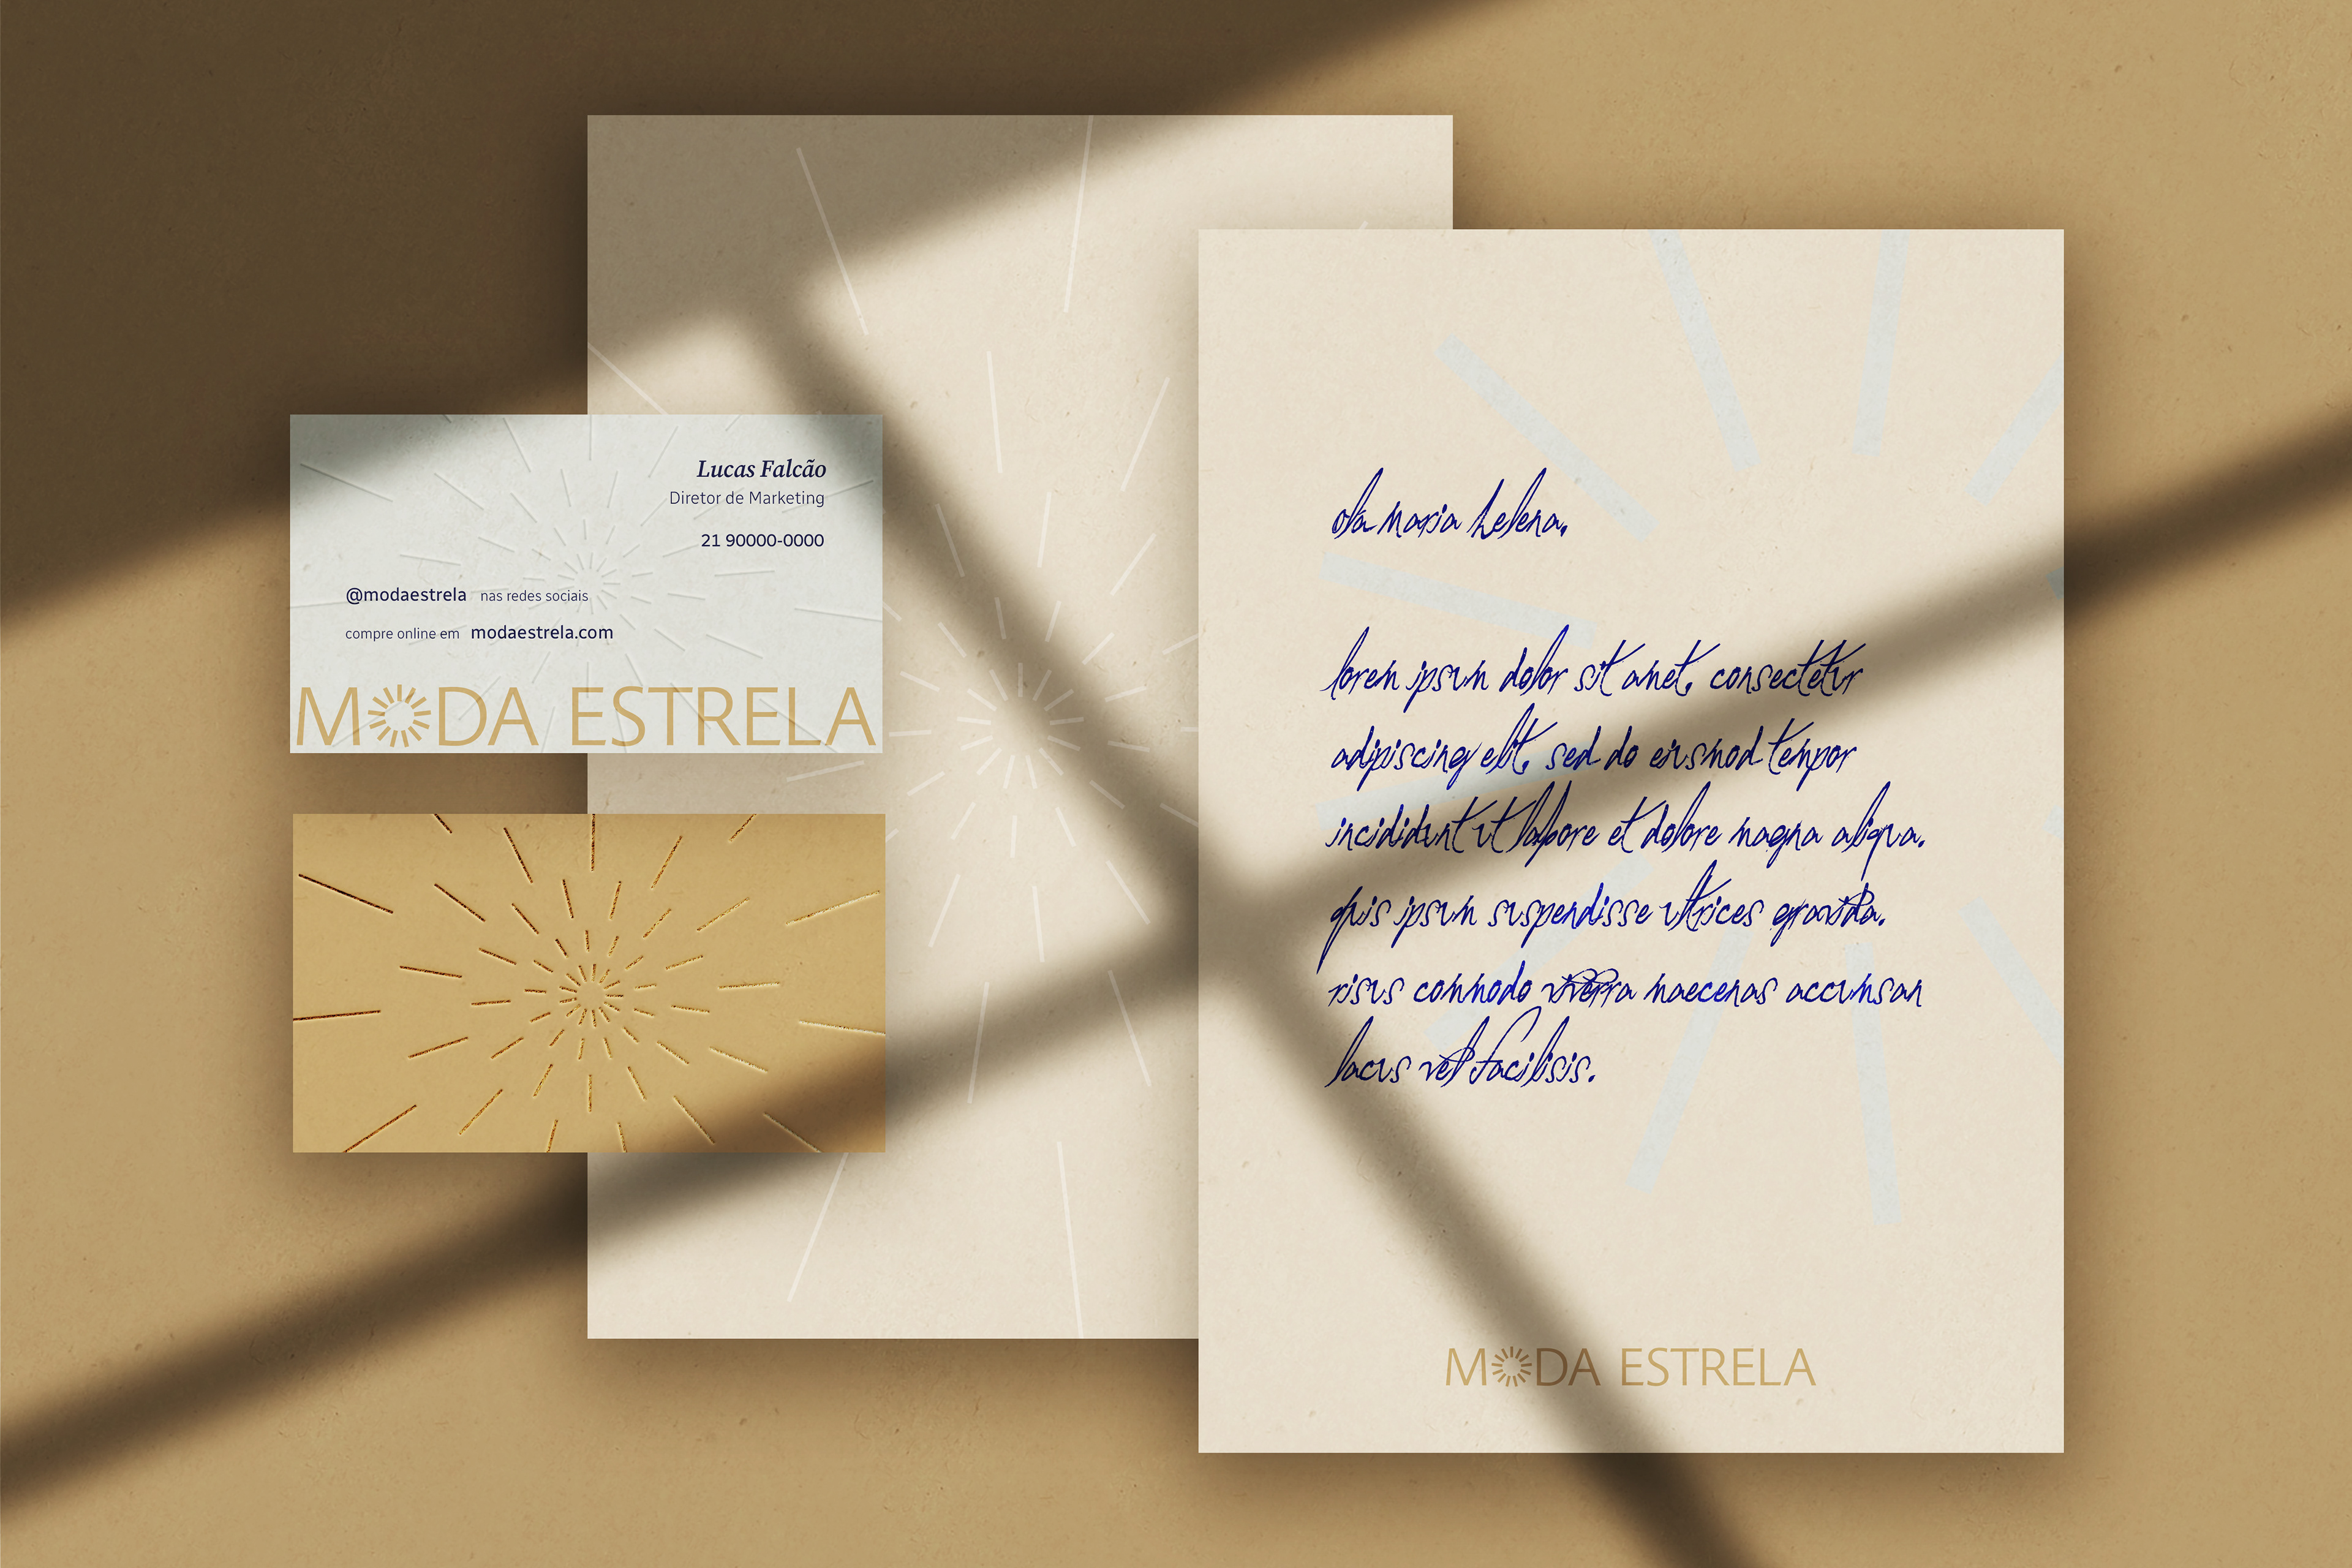 Lucas Falcão
Diretor de Marketing
21 90000-0000
@modaestrela nas redes sociais
compre online em modaestrela.com
MODA ESTRELA
ola maria helena,
lorem ipsum dolor sit amet, consectetur
adipiscing elit, sed do eiusmod tempor
incididunt ut labore et dolore magna aliqua.
quis ipsum suspendisse ultrices gravida.
risus commodo viverra maecenas accumsan
lacus vel facilisis.
MODA ESTRELA